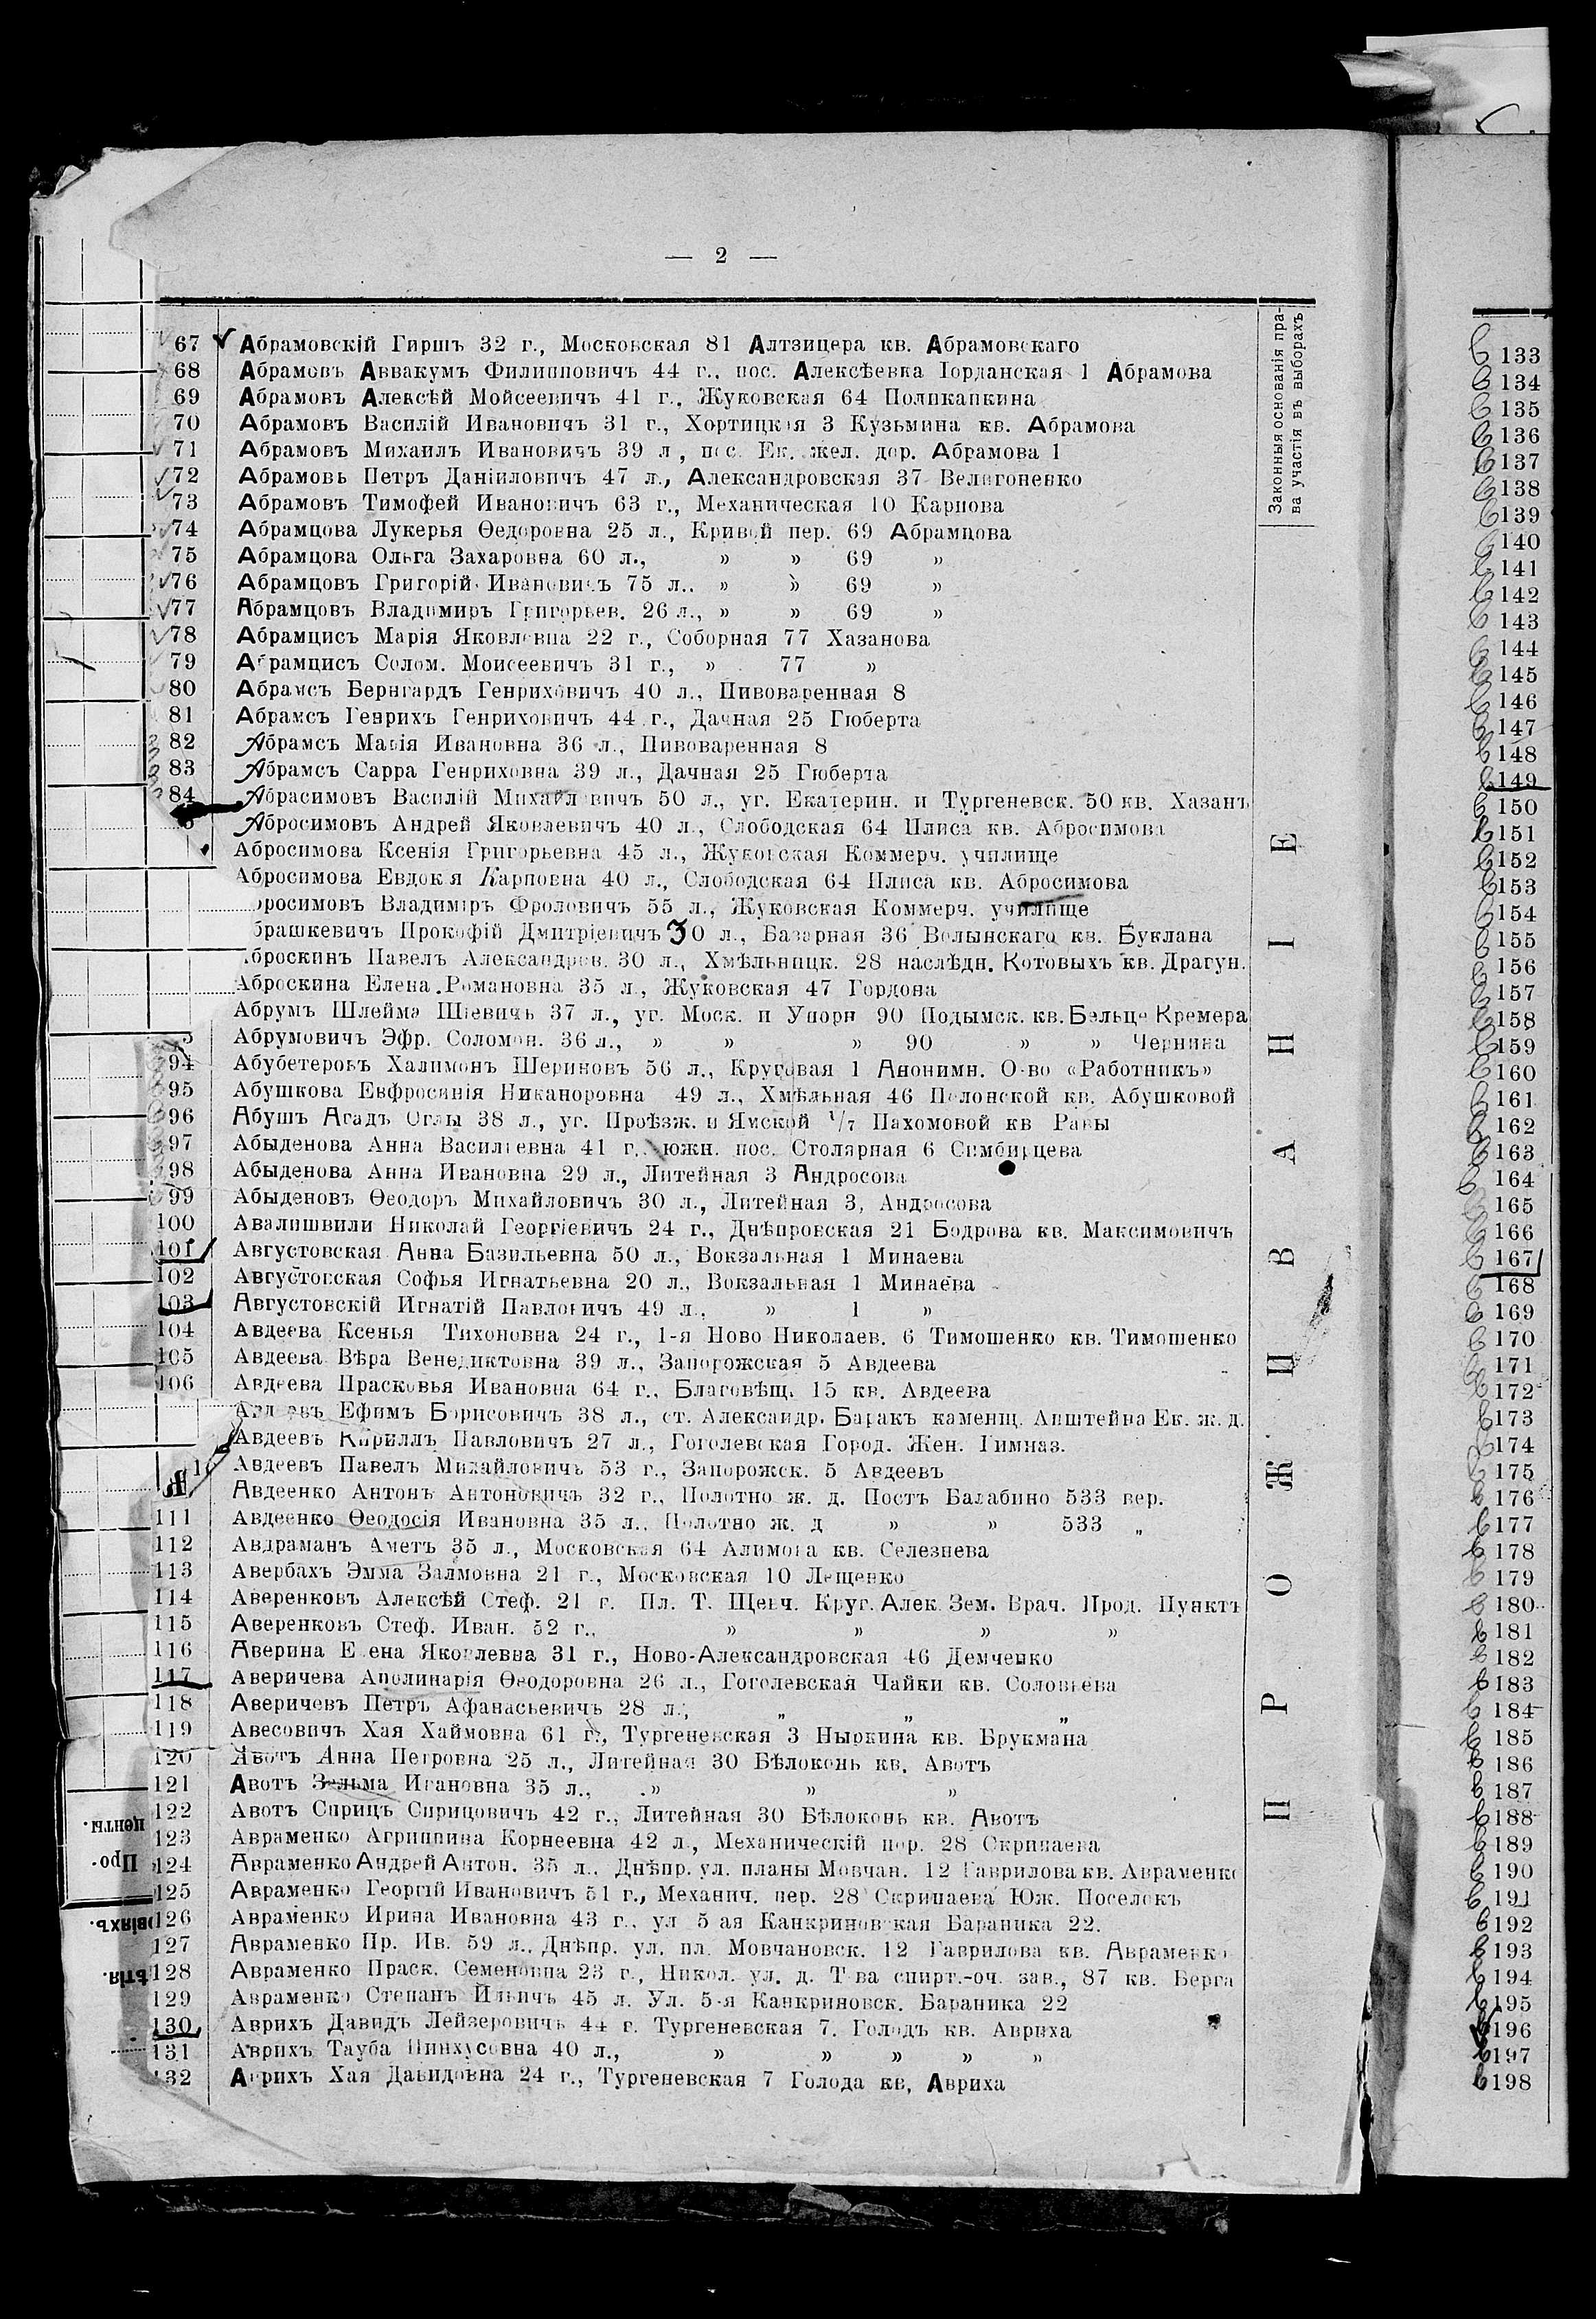 — 2 —
Законныя основанія пра-
ва участія въ выборахъ
ПРОЖИВАНІЕ
67 Абрамовскій Гиршъ 32 г., Московская 81 Алтзицера кв. Абрамовскаго
68 Абрамовъ Аввакумъ Филипповичъ 44 г., пос. Алексѣевка Іорданская 1 Абрамова
69 Абрамовъ Алексѣй Мойсеевичъ 41 г., Жуковская 64 Поликапкина
70 Абрамовъ Василій Ивановичъ 31 г., Хортицкая 3 Кузьмина кв. Абрамова
71 Абрамовъ Михаилъ Ивановичъ 39 л., пос. Ек. жел. дор. Абрамова 1
72 Абрамовъ Петръ Даніиловичъ 47 л., Александровская 37 Велигоненко
73 Абрамовъ Тимофей Ивановичъ 63 г., Механическая 10 Карпова
74 Абрамцова Лукерья Ѳедоровна 25 л., Кривой пер. 69 Абрамцова
75 Абрамцова Ольга Захаровна 60 л., » » 69 »
76 Абрамцовъ Григорій Ивановичъ 75 л.. » » 69 »
77 Абрамцовъ Владимиръ Григорьев. 26 л., » » 69 »
78 Абрамцисъ Марія Яковлевна 22 г., Соборная 77 Хазанова
79 Абрамцисъ Солом. Моисеевичъ 31 г., » 77 »
80 Абрамсъ Бернгардъ Генриховичъ 40 л., Пивоваренная 8
81 Абрамсъ Генрихъ Генриховичъ 44 г., Дачная 25 Гюберта
82 Абрамсъ Марія Ивановна 36 л., Пивоваренная 8
83 Абрамсъ Сарра Генриховна 39 л., Дачная 25 Гюберта
84 Абрасимовъ Василій Михайловичъ 50 л., уг. Екатерин. и Тургеневск. 50 кв. Хазанъ
Абросимовъ Андрей Яковлевичъ 40 л., Слободская 64 Плиса кв. Абросимова
Абросимова Ксенія Григорьевна 45 л., Жуковская Коммерч. училище
Абросимова Евдокія Карповна 40 л., Слободская 64 Плиса кв. Абросимова
росимовъ Владиміръ Фроловичъ 55 л., Жуковская Коммерч. училище
брашкевичъ Прокофій Дмитріевичъ 30 л., Базарная 36 Волынскаго кв. Буклана
броскинъ Павелъ Александров. 30 л., Хмѣльницк. 28 наслѣдн. Котовыхъ кв. Драгун.
Аброскина Елена Романовна 35 л., Жуковская 47 Гордона
Абрумъ Шлейма Шіевичъ 37 л., уг. Моск. и Упорн 90 Подымск. кв. Бельце Кремера
3 Абрумовичъ Эфр. Соломон. 36 л., » » » 90 » » Чернина
94 Абубетеровъ Халимонъ Шериновъ 56 л., Круговая 1 Анонимн. О-во «Работникъ»
95 Абушкова Евфросинія Никаноровна 49 л., Хмѣльная 46 Полонской кв. Абушковой
96 Абушъ Агадъ Оглы 38 л., уг. Проѣзж. и Ямской 1/7 Пахомовой кв Равы
97 Абыденова Анна Василіевна 41 г., южн. пос. Столярная 6 Симбирцева
98 Абыденова Анна Ивановна 29 л., Литейная 3 Андросова
99 Абыденовъ Ѳеодоръ Михайловичъ 30 л., Литейная 3, Андросова
100 Авалишвили Николай Георгіевичъ 24 г., Днѣпровская 21 Бодрова кв. Максимовичъ
101 Августовская Анна Базильевна 50 л., Вокзальная 1 Минаева
102 Августовская Софья Игнатьевна 20 л., Вокзальная 1 Минаева
103 Августовскій Игнатій Павловичъ 49 л., » 1 »
104 Авдеева Ксенья Тихоновна 24 г., 1-я Ново Николаев. 6 Тимошенко кв. Тимошенко
105 Авдеева Вѣра Венедиктовна 39 л., Запорожская 5 Авдеева
106 Авдеева Прасковья Ивановна 64 г., Благовѣщ. 15 кв. Авдеева
Ефимъ Борисовичъ 38 л., ст. Александр. Баракъ каменщ. Апштейна Ек. ж. д.
Авдеевъ Кириллъ Павловичъ 27 л., Гоголевская Город. Жен. Гимназ.
Авдеевъ Павелъ Михайловичъ 53 г., Запорожск. 5 Авдеевъ
Авдеенко Антонъ Антоновичъ 32 г., Полотно ж. д. Постъ Балабино 533 вер.
111 Авдеенко Ѳеодосія Ивановна 35 л., Полотно ж. д » » 533 „
112 Авдраманъ Аметъ 35 л., Московская 64 Алимова кв. Селезнева
113 Авербахъ Эмма Залмовна 21 г., Московская 10 Лещенко
114 Аверенковъ Алексѣй Стеф. 21 г. Пл. Т. Щевч. Круг. Алек. Зем. Врач. Прод. Пунктъ
115 Аверенковъ Стеф. Иван. 52 г., » » » »
116 Аверина Е ена Яковлевна 31 г., Ново-Александровская 46 Демченко
117 Аверичева Аполинарія Ѳеодоровна 26 л., Гоголевская Чайки кв. Соловьева
118 Аверичевъ Петръ Афанасьевичъ 28 л., „ „ „
119 Авесовичъ Хая Хаймовна 61 г., Тургеневская 3 Ныркина кв. Брукмана
120 Авотъ Анна Петровна 25 л., Литейная 30 Бѣлоконь кв. Авотъ
121 Авотъ Зельма Ивановна 35 л., » » »
122 Авотъ Сприцъ Сприцовичъ 42 г., Литейная 30 Бѣлоконь кв. Авотъ
123 Авраменко Агриппина Корнеевна 42 л., Механическій пер. 28 Скрипаева
124 Авраменко Андрей Антон. 35 л.. Днѣпр. ул. планы Мовчан. 12 Гаврилова кв. Авраменко
125 Авраменко Георгій Ивановичъ 51 г., Механич. пер. 28 Скрипаева Юж. Поселокъ
126 Авраменко Ирина Ивановна 43 г., ул 5 ая Канкриновская Бараника 22.
127 Авраменко Пр. Ив. 59 л., Днѣпр. ул. пл. Мовчановск. 12 Гаврилова кв. Авраменко
128 Авраменко Праск. Семеновна 23 г., Никол. ул. д. Т-ва спирт.-оч. зав., 87 кв. Берга
129 Авраменко Степанъ Ильичъ 45 л. Ул. 5-я Канкриновск. Бараника 22
130 Аврихъ Давидъ Лейзеровичъ 44 г. Тургеневская 7. Голодъ кв. Авриха
131 Аврихъ Тауба Пинхусовна 40 л., » » » » »
132 Аврихъ Хая Давидовна 24 г., Тургеневская 7 Голода кв, Авриха
центы.
Про-
овіяхъ.
ѣтія.
133
134
135
136
137
138
139
140
141
142
143
144
145
146
147
148
149
150
151
152
153
154
155
156
157
158
159
160
161
162
163
164
165
166
167
168
169
170
171
172
173
174
175
176
177
178
179
180
181
182
183
184
185
186
187
188
189
190
191
192
193
194
195
196
197
198